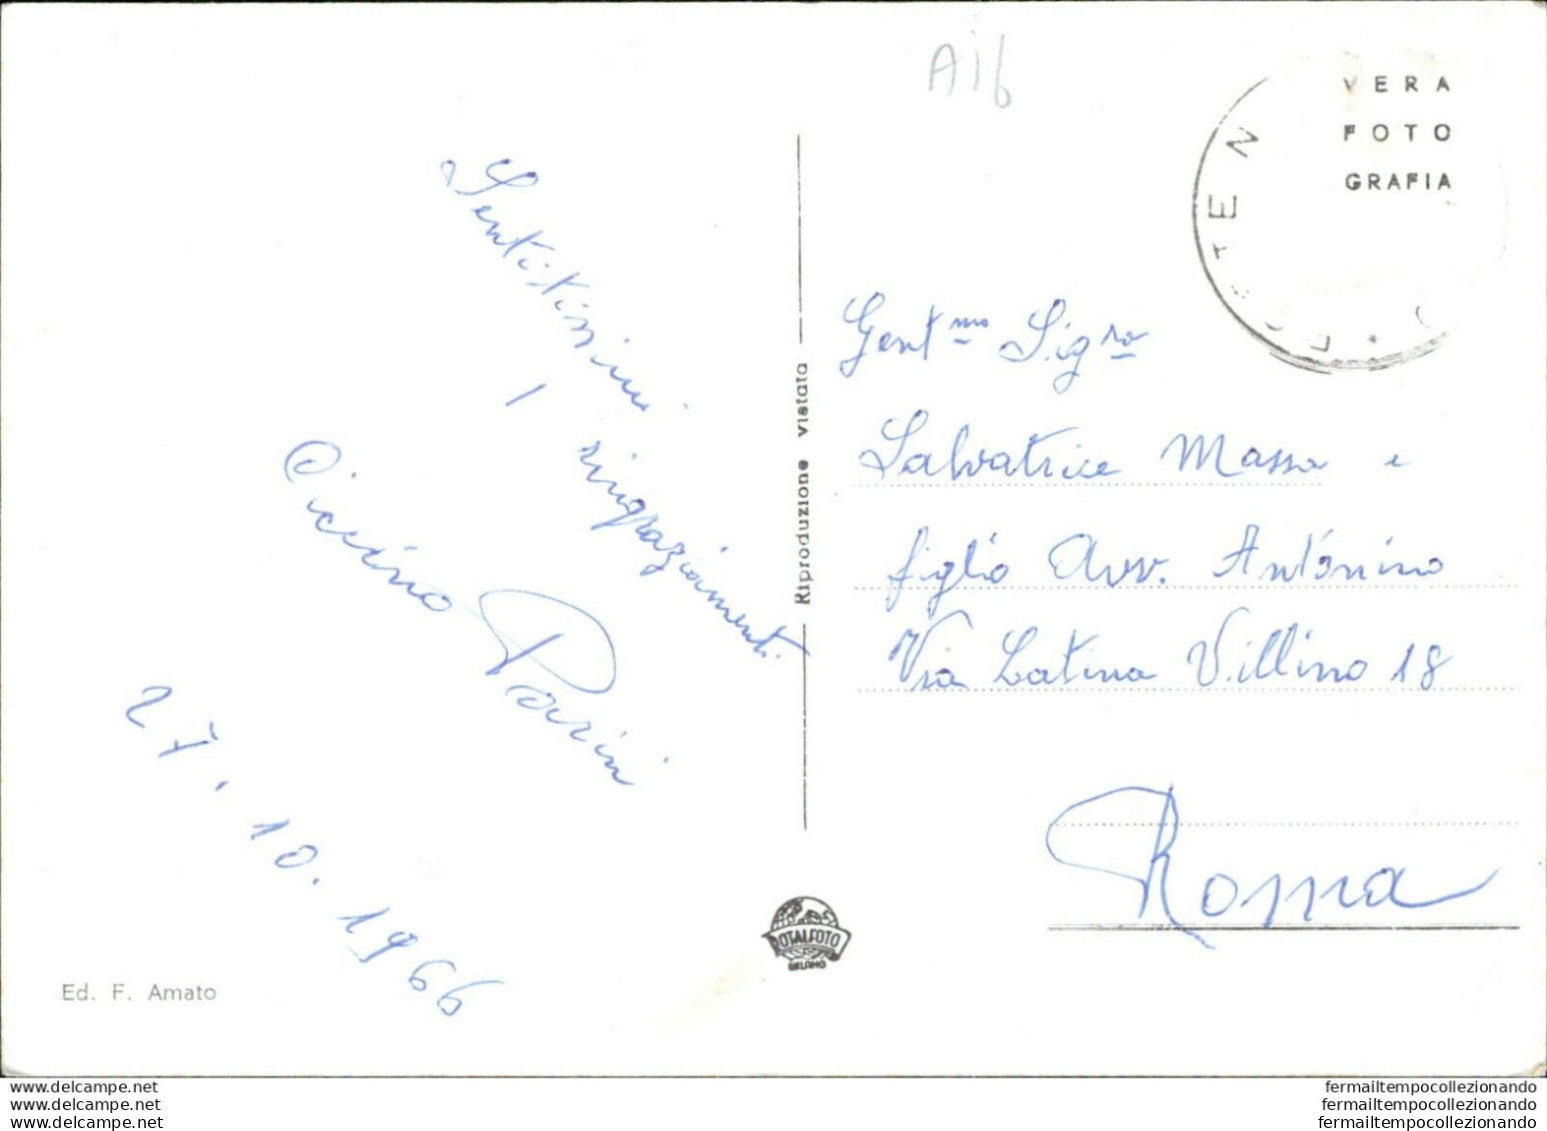 A16
VERA
FOTO
GRAFIA
Sentitissimi
ringraziamenti
Ciccino Parini
27.10.1966
Ed. F. Amato
Riproduzione vietata
ROTALFOTO
MILANO
Gent.mo Sig.ra
Salvatrice Massa e
figlio Avv. Antonino
Via Latina Villino 18
Roma
www.delcampe.net
www.delcampe.net
www.delcampe.net
fermailtempocollezionando
fermailtempocollezionando
fermailtempocollezionando